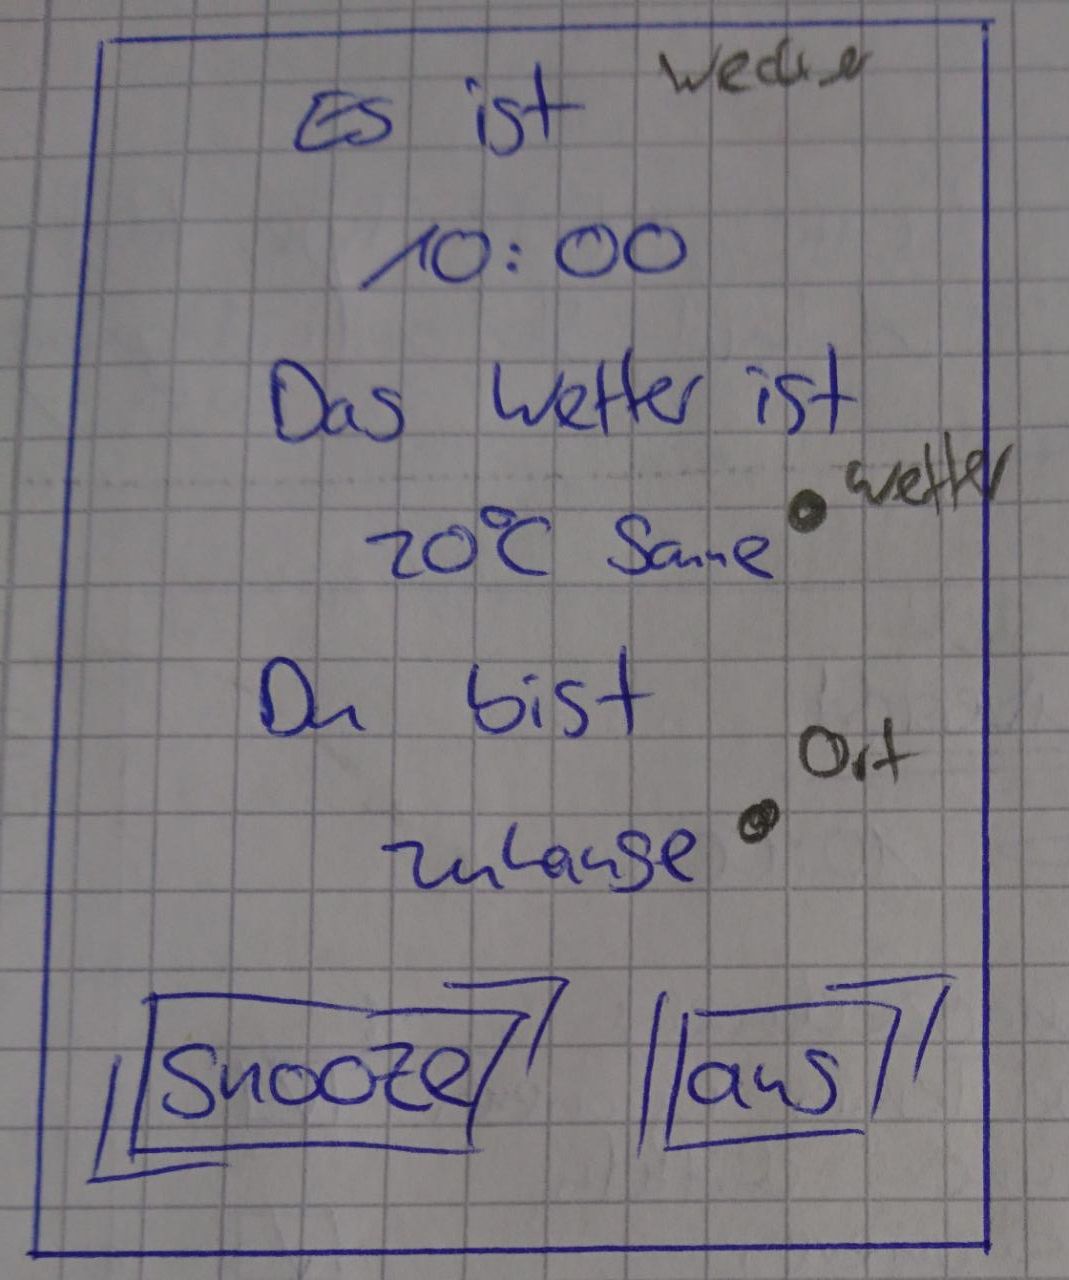 Wecker
Es ist
10:00
Das Wetter ist
Wetter
20°C Sonne
Du bist
Ort
zuhause
Snooze
aus